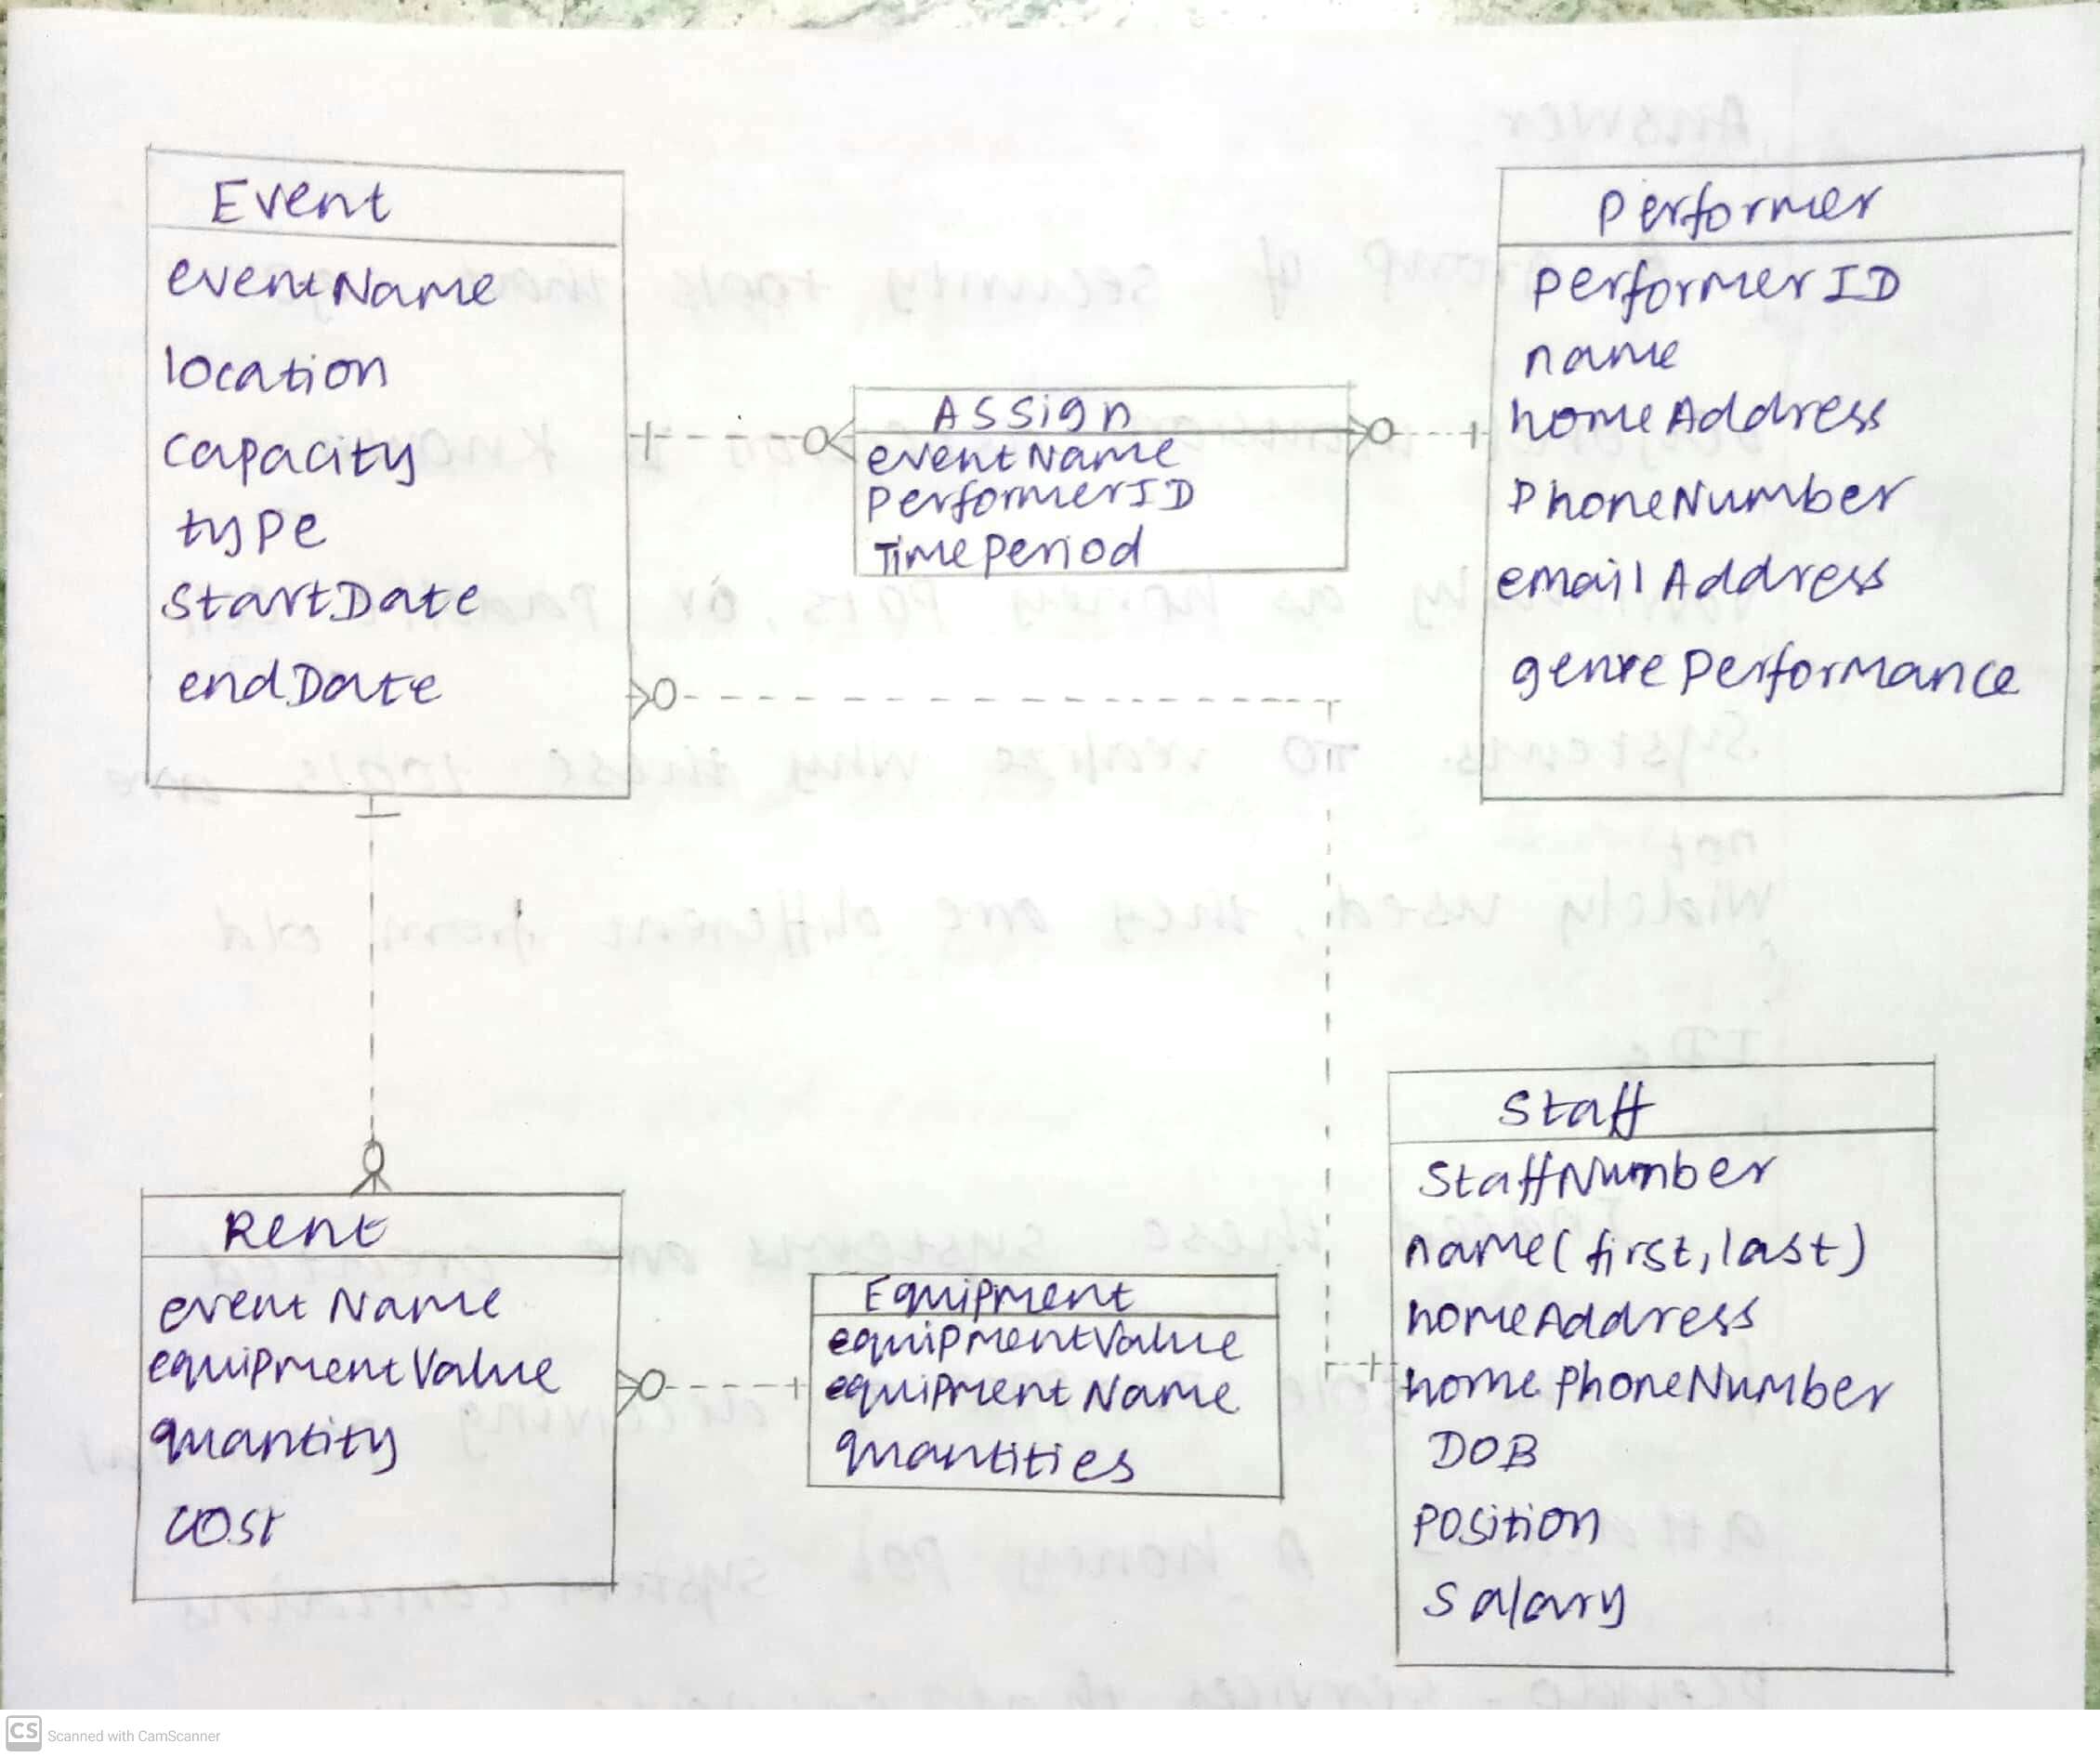 Event
eventName
location
capacity
type
startDate
endDate
Assign
eventName
performerID
TimePeriod
Performer
performerID
name
homeAddress
PhoneNumber
emailAddress
genrePerformance
Rent
eventName
equipmentValue
quantity
cost
Equipment
equipmentValue
equipmentName
quantities
Staff
StaffNumber
name(first,last)
homeAddress
homePhoneNumber
DOB
Position
Salary
CS Scanned with CamScanner